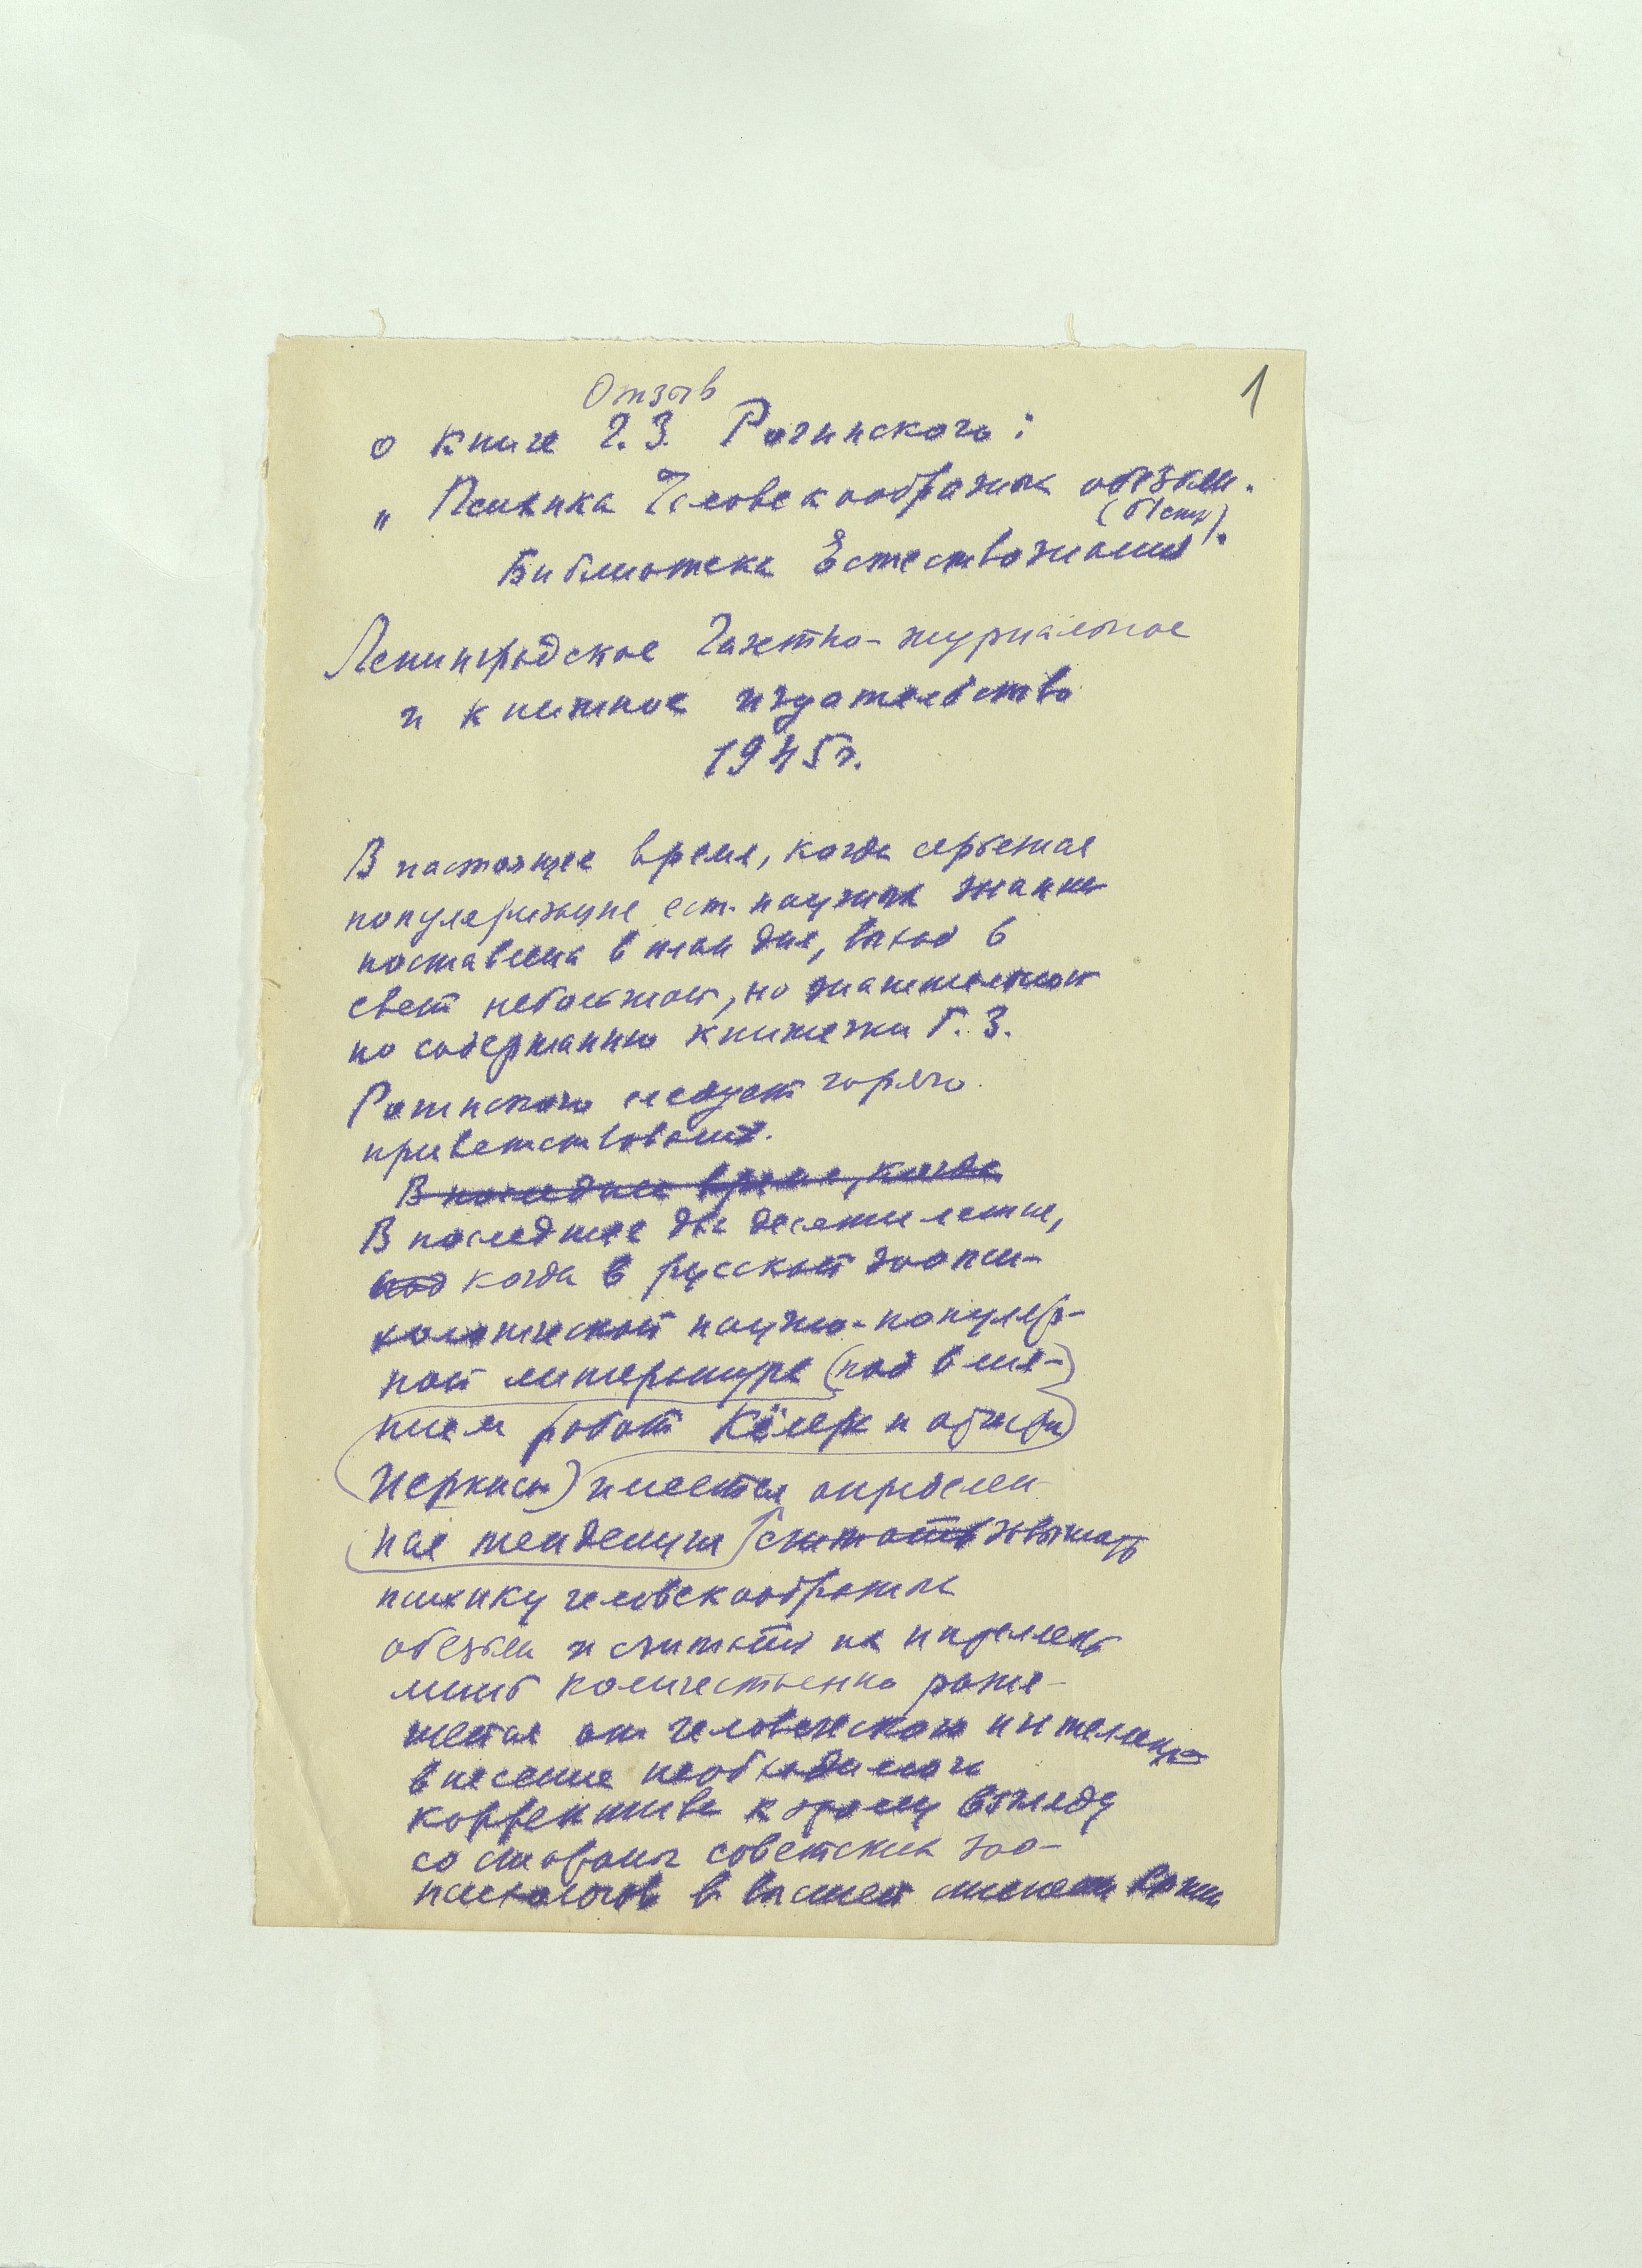 1
Отзыв
о книге Г.З. Рогинского:
„Психика Человекообразных обезьян.
(61 стр).
Библиотека Естествознания.
Ленинградское Газетно-журнальное
и книжное издательство
1945г.
В настоящее время, когда серьезная
популяризация ест. научных знаний
поставлена в план дня, выход в
свет небольшой, но значительной
по содержанию книжечки Г. З.
Рогинского следует горячо
приветствовать.
В последнее время, когда
В последнее два десятилетия,
когда в русской зоопси-
хологической научно-популяр-
ной литературе (под влия-
нием работ Кёлера и
Иеркиса) имеется определен-
ная тенденция считать завышать
психику человекообразных
обезьян и считать их интеллект
лишь количественно разня-
щейся от человеческого интеллекта
внесение необходимого
корректива к этому взгляду
со стороны советских зоо-
психологов в высшей степени